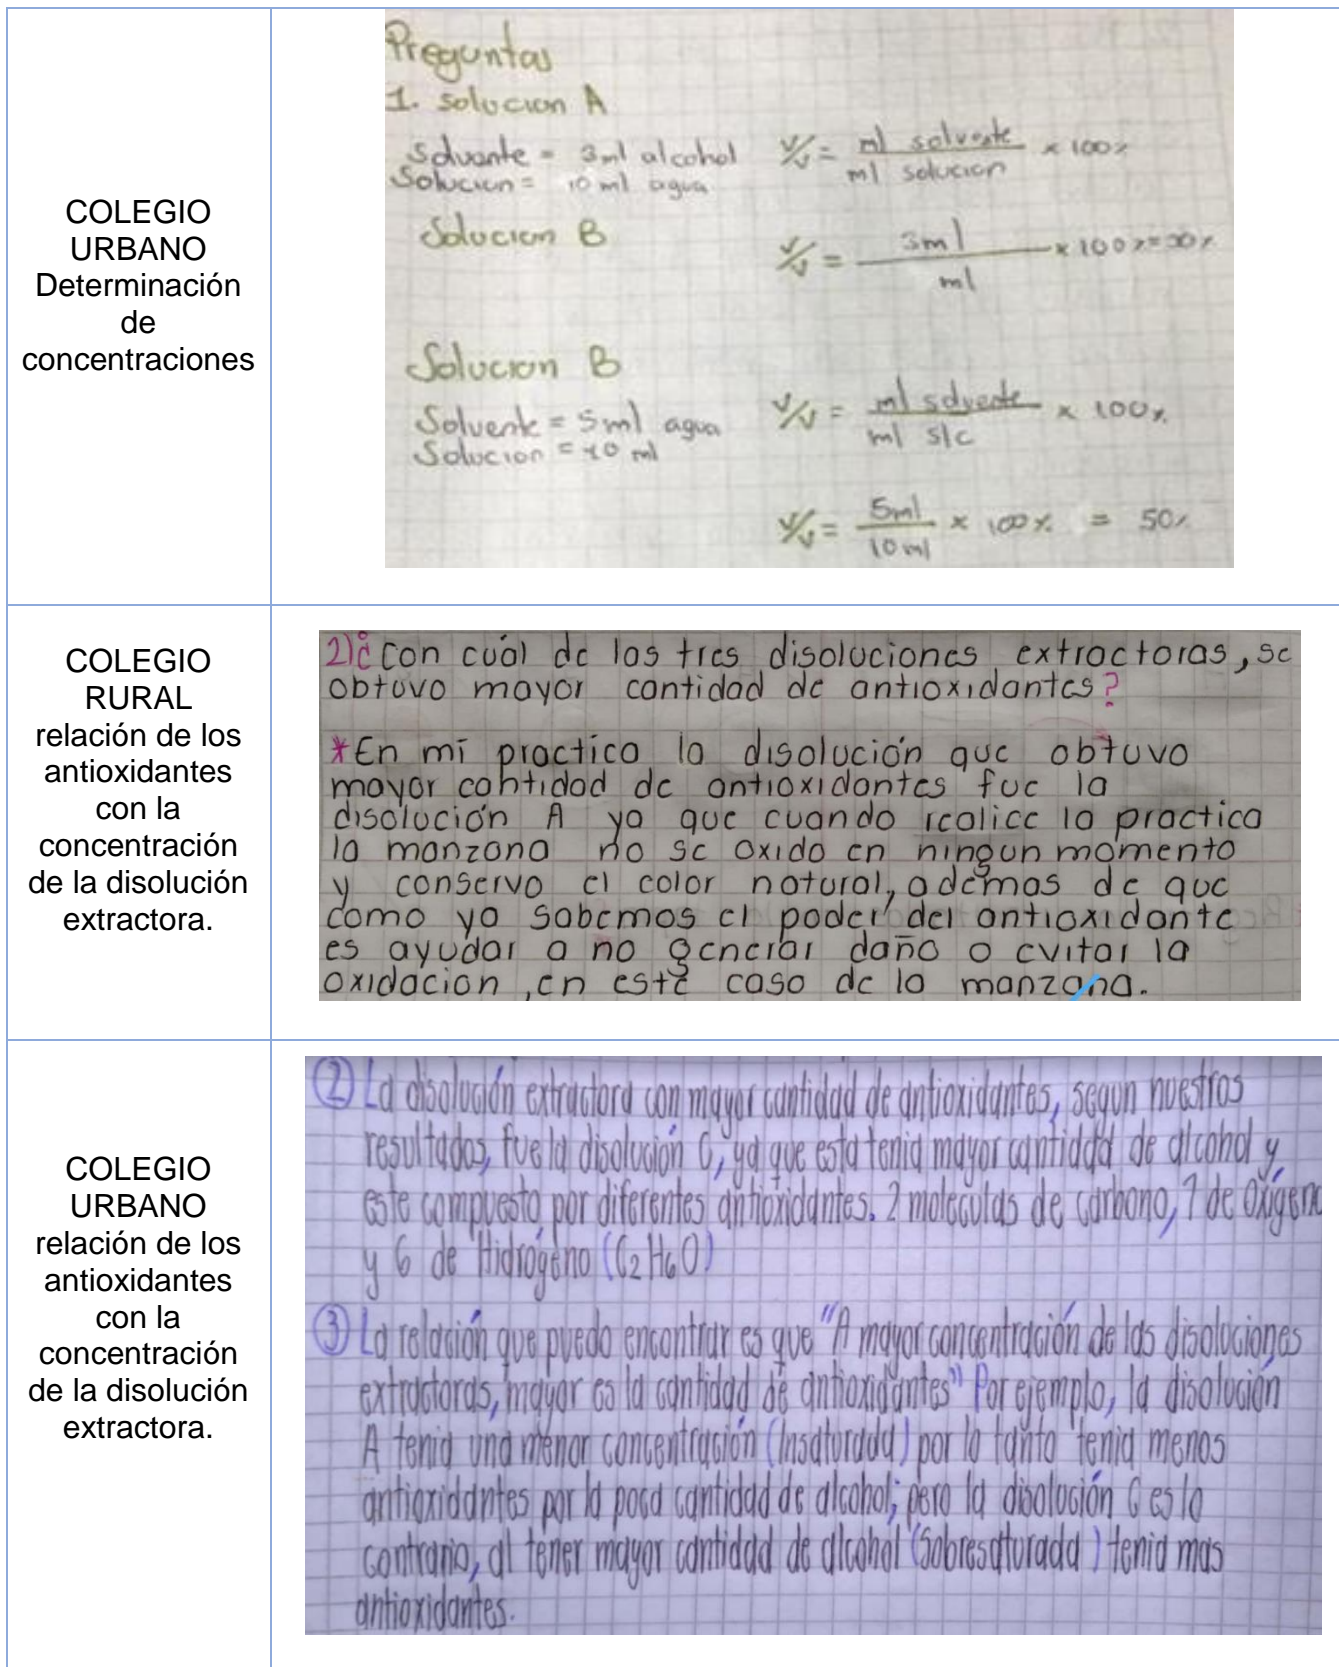 COLEGIO
URBANO
Determinación
de
concentraciones
Preguntas
1. solucion A
Solvante = 3ml alcohol
Solucion = 10 ml agua
V/V = ml solvente / ml solucion × 100%
Solucion B
V/V = 3ml / ml × 100% = 30%
Solucion B
Solvente = 5ml agua
Solucion = 10 ml
V/V = ml solvente / ml s/c × 100%
V/V = 5ml / 10 ml × 100% = 50%
COLEGIO
RURAL
relación de los
antioxidantes
con la
concentración
de la disolución
extractora.
2)¿con cuál de las tres disoluciones extractoras, se
obtuvo mayor cantidad de antioxidantes?
*En mi practica la disolución que obtuvo
mayor cantidad de antioxidantes fue la
disolución A ya que cuando realice la practica
la manzana no se oxido en ningun momento
y conservo el color natural, ademas de que
como ya sabemos el poder del antioxidante
es ayudar a no generar daño o evitar la
oxidacion, en este caso de la manzana.
COLEGIO
URBANO
relación de los
antioxidantes
con la
concentración
de la disolución
extractora.
② La disolución extractora con mayor cantidad de antioxidantes, segun nuestros
resultados, fue la disolución C, ya que esta tenia mayor cantidad de alcohol y
este compuesto por diferentes antioxidantes. 2 moleculas de carbono, 1 de Oxígeno
y 6 de Hidrógeno (C2H6O)
③ La relación que puedo encontrar es que "A mayor concentración de las disoluciones
extractoras, mayor es la cantidad de antioxidantes" Por ejemplo, la disolución
A tenia una menor concentración (Insaturada) por lo tanto tenia menos
antioxidantes por la poca cantidad de alcohol; pero la disolución C es lo
contrario, al tener mayor cantidad de alcohol (Sobresaturada) tenia mas
antioxidantes.